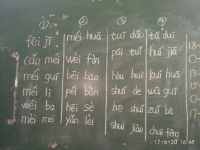 ① ② ③ ④
fēi jī méi huā tuī dǎo tǔ duī
cǎo méi wèi fàn pái tuī huí jiā
méi guī bēi bāo hòu huǐ kuí huā
méi lì pèi bàn shuǐ dī wū guī
wěi ba hēi sè hē shuǐ zuǐ bā
mèi mei yǎn lèi shuì jiào chuī fēng
17-6-20 16:48